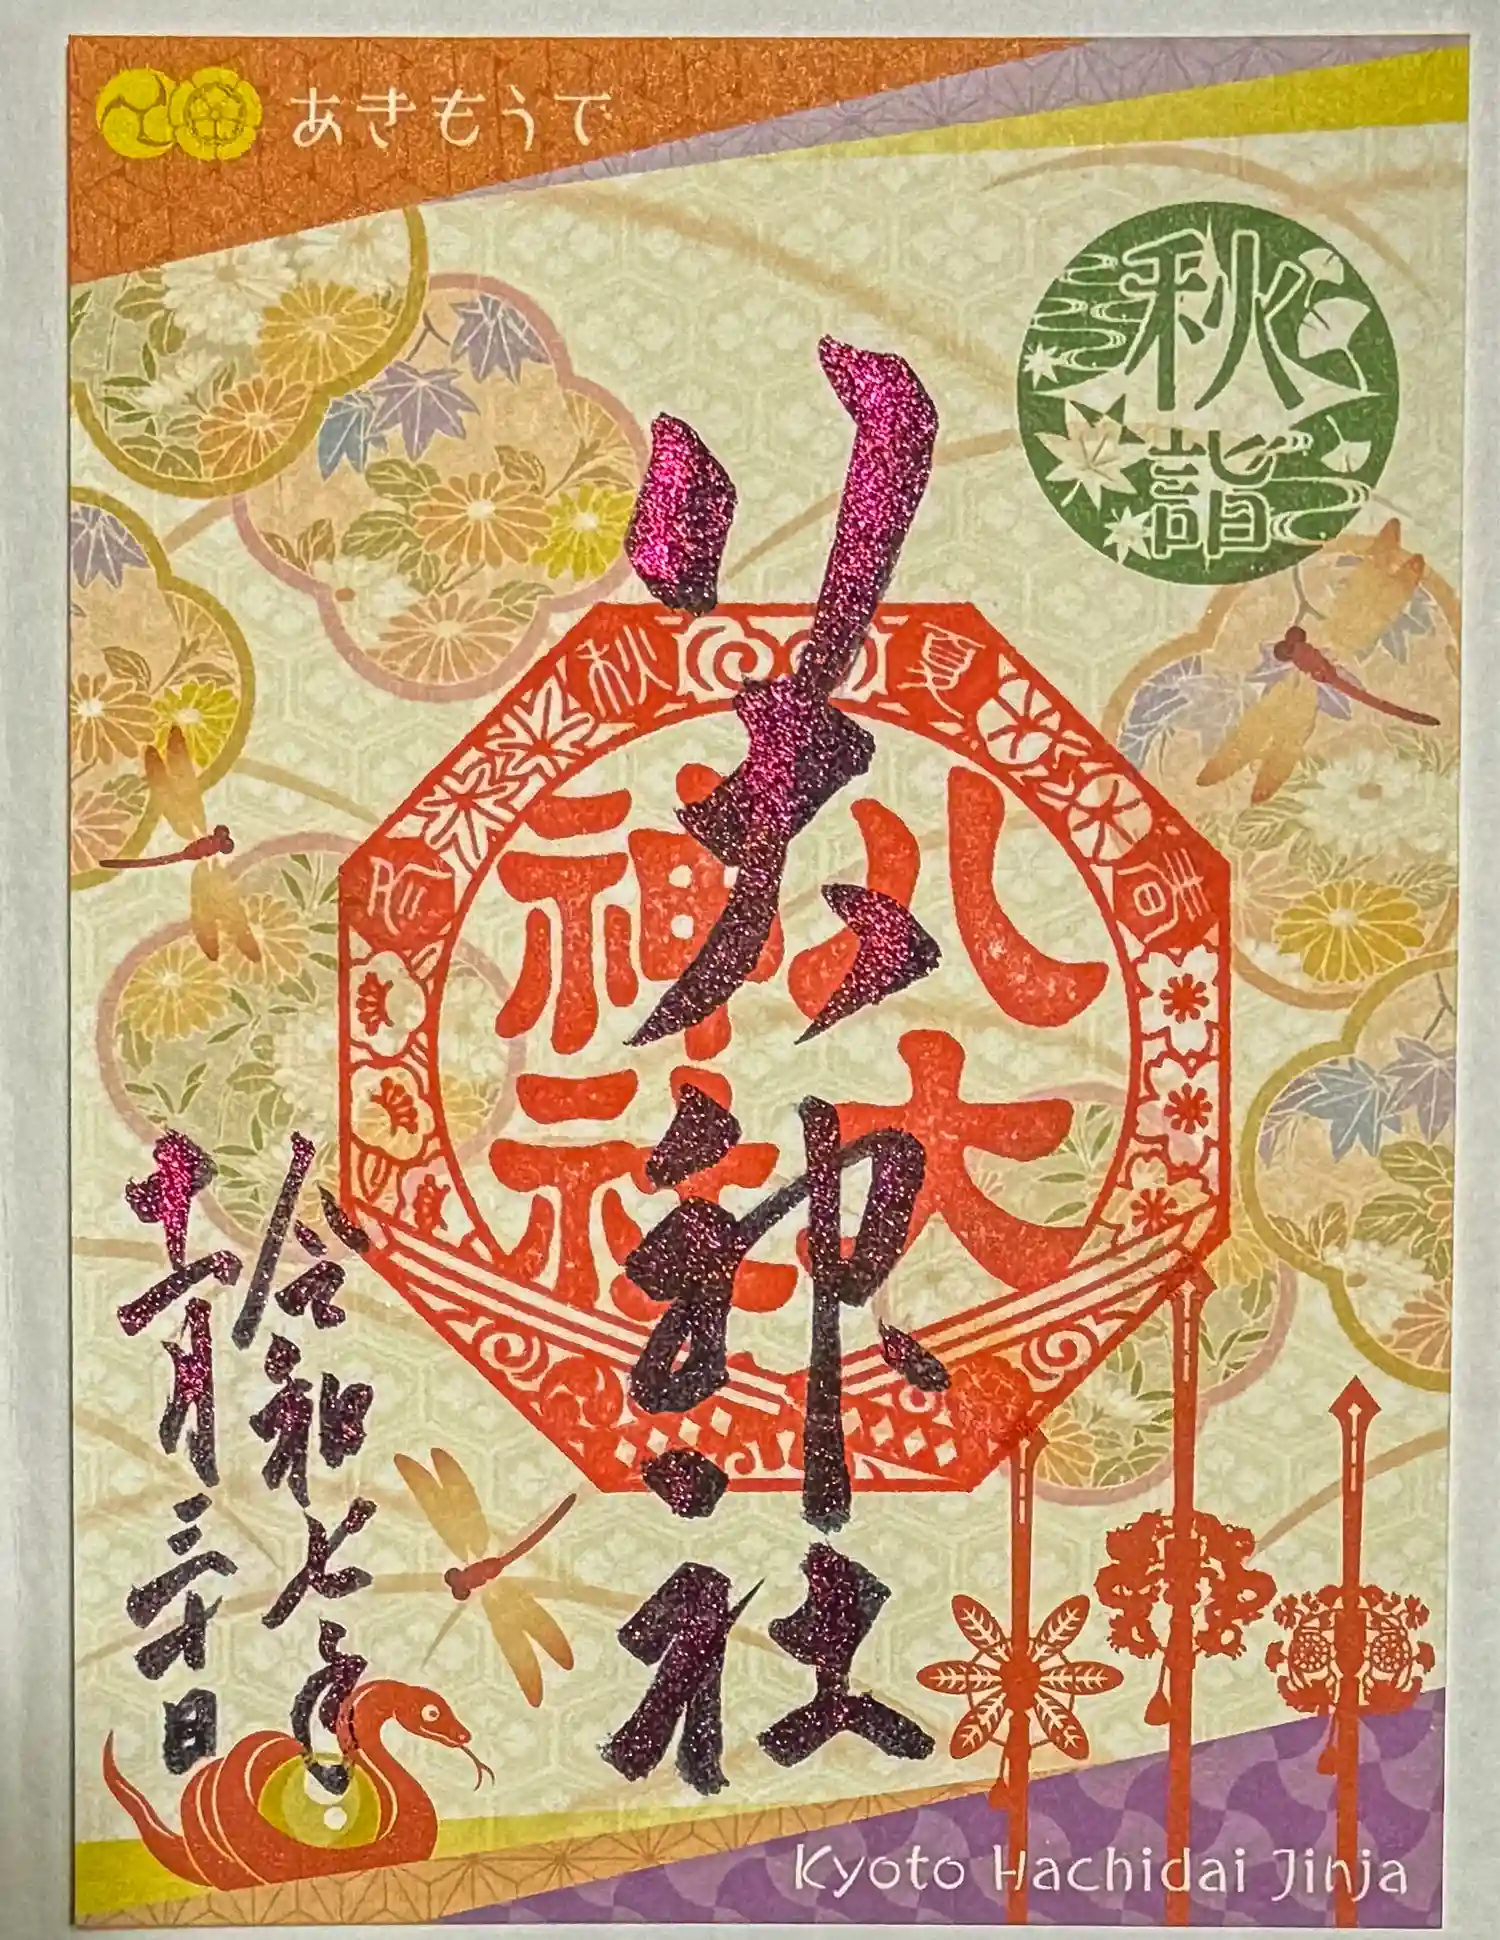 あきもうで
秋詣
春
夏
秋
八大
神社
八大神社
令和七年
十一月三十日
Kyoto Hachidai Jinja